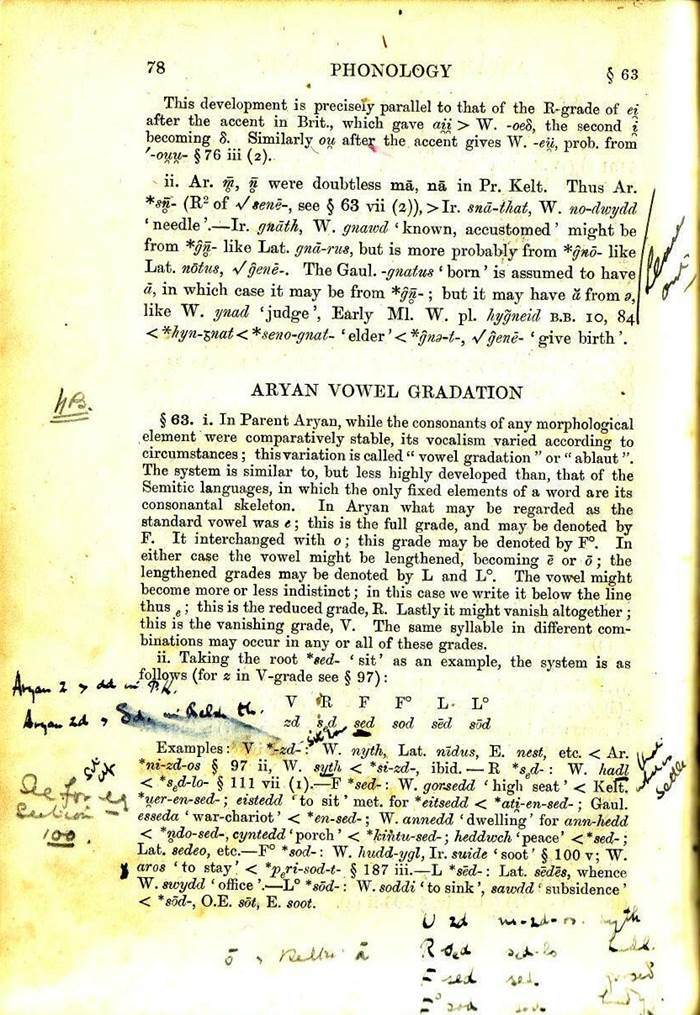 78 PHONOLOGY § 63
This development is precisely parallel to that of the R-grade of ei̯
after the accent in Brit., which gave ai̯i̯ > W. -oeδ, the second i̯
becoming δ. Similarly ou̯ after the accent gives W. -eu̯, prob. from
´-ou̯u̯- § 76 iii (2).
ii. Ar. m̥̄, n̥̄ were doubtless mā, nā in Pr. Kelt. Thus Ar.
*sn̥̄- (R² of √senē-, see § 63 vii (2)), > Ir. snā-that, W. no-dwydd
‘needle’.—Ir. gnāth, W. gnawd ‘known, accustomed’ might be
from *ĝn̥̄- like Lat. gnā-rus, but is more probably from *ĝnō- like
Lat. nōtus, √ĝenē-. The Gaul. -gnatus ‘born’ is assumed to have
ā, in which case it may be from *ĝn̥̄-; but it may have ă from ə,
like W. ynad ‘judge’, Early Ml. W. pl. hyg̃neid B.B. 10, 84
< *hyn-ʒnat < *seno-gnat- ‘elder’ < *ĝnə-t-, √ĝenē- ‘give birth’.
Leave out
ARYAN VOWEL GRADATION
N.B.
§ 63. i. In Parent Aryan, while the consonants of any morphological
element were comparatively stable, its vocalism varied according to
circumstances; this variation is called “ vowel gradation ” or “ ablaut ”.
The system is similar to, but less highly developed than, that of the
Semitic languages, in which the only fixed elements of a word are its
consonantal skeleton. In Aryan what may be regarded as the
standard vowel was e; this is the full grade, and may be denoted by
F. It interchanged with o; this grade may be denoted by F°. In
either case the vowel might be lengthened, becoming ē or ō; the
lengthened grades may be denoted by L and L°. The vowel might
become more or less indistinct; in this case we write it below the line
thus ₑ; this is the reduced grade, R. Lastly it might vanish altogether;
this is the vanishing grade, V. The same syllable in different com-
binations may occur in any or all of these grades.
ii. Taking the root *sed- ‘sit’ as an example, the system is as
follows (for z in V-grade see § 97):
Aryan z > dd in
Aryan zd >
V R F F° L L°
zd sₑd sed sod sēd sōd
Examples: V *-zd-: W. nyth, Lat. nīdus, E. nest, etc. < Ar.
*ni-zd-os § 97 ii, W. syth < *si-zd-, ibid.—R *sₑd-: W. hadl
< *sₑd-lo- § 111 vii (1).—F *sed-: W. gorsedd ‘high seat’ < Kelt.
*u̯er-en-sed-; eistedd ‘to sit’ met. for *eitsedd < *ati̯-en-sed-; Gaul.
esseda ‘war-chariot’ < *en-sed-; W. annedd ‘dwelling’ for ann-hedd
< *n̥do-sed-, cyntedd ‘porch’ < *kintu-sed-; heddwch ‘peace’ < *sed-;
Lat. sedeo, etc.—F° *sod-: W. hudd-ygl, Ir. suide ‘soot’ § 100 v; W.
aros ‘to stay’ < *pₑri-sod-t- § 187 iii.—L *sēd-: Lat. sēdēs, whence
W. swydd ‘office’.—L° *sōd-: W. soddi ‘to sink’, sawdd ‘subsidence’
< *sōd-, O.E. sōt, E. soot.
section
100.
V zd ni-zd-os. nyth
ō > Keltic ā
R sed sed-lo hadl.
F sed sed.
F° sod